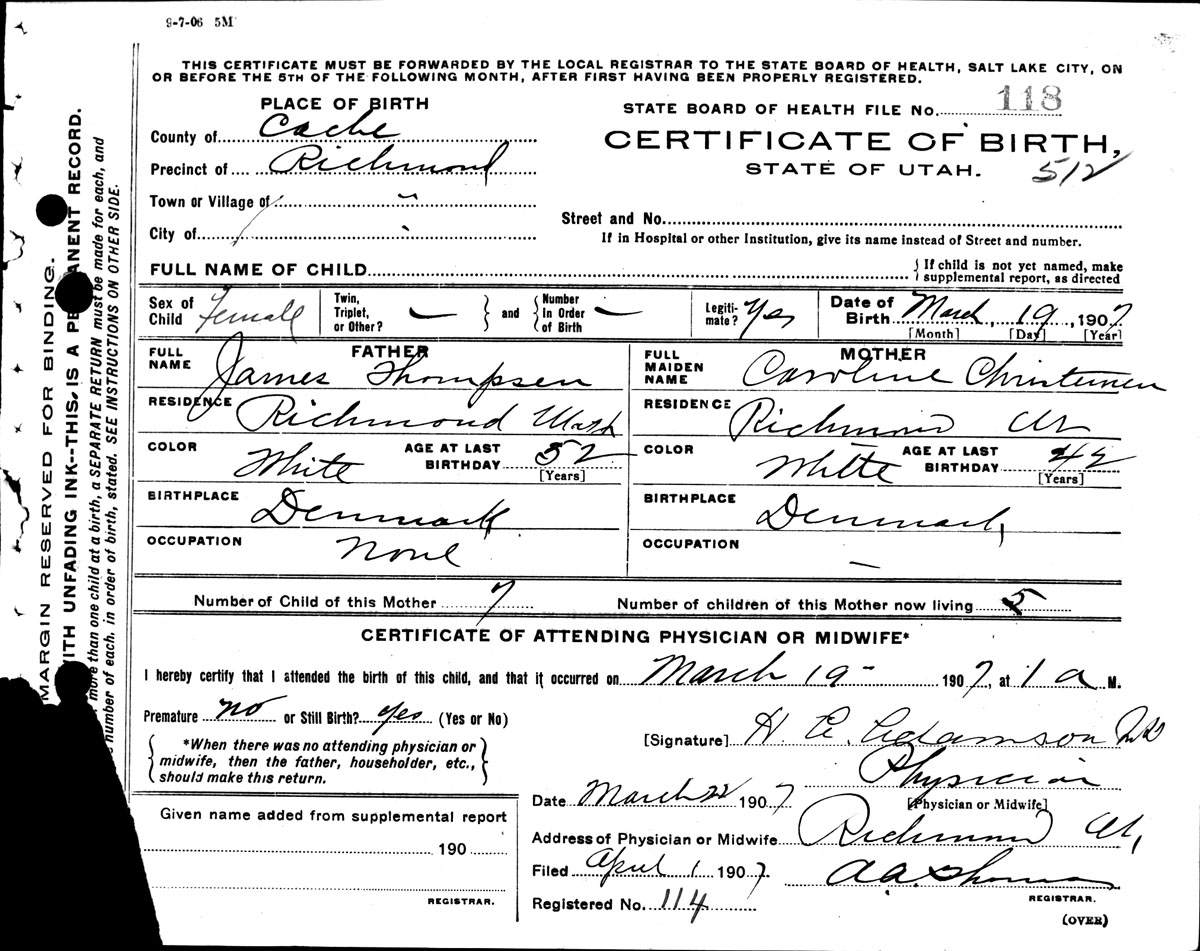 9-7-06 5M
THIS CERTIFICATE MUST BE FORWARDED BY THE LOCAL REGISTRAR TO THE STATE BOARD OF HEALTH, SALT LAKE CITY, ON
OR BEFORE THE 5TH OF THE FOLLOWING MONTH, AFTER FIRST HAVING BEEN PROPERLY REGISTERED.
PLACE OF BIRTH
STATE BOARD OF HEALTH FILE No. 118
County of Cache
CERTIFICATE OF BIRTH,
Precinct of Richmond
STATE OF UTAH.
512
Town or Village of "
Street and No.
City of
If in Hospital or other Institution, give its name instead of Street and number.
FULL NAME OF CHILD
{ If child is not yet named, make
supplemental report, as directed
Sex of Child Female
Twin, Triplet, or Other? —
} and {
Number in Order of Birth —
Legitimate? Yes
Date of Birth March, 19, 1907
[Month] [Day] [Year]
FATHER
FULL NAME James Thompsen
RESIDENCE Richmond Utah
COLOR White AGE AT LAST BIRTHDAY 52
[Years]
BIRTHPLACE Denmark
OCCUPATION None
MOTHER
FULL MAIDEN NAME Caroline Christensen
RESIDENCE Richmond Ut
COLOR White AGE AT LAST BIRTHDAY 42
[Years]
BIRTHPLACE Denmark
OCCUPATION —
Number of Child of this Mother 7 Number of children of this Mother now living 5
CERTIFICATE OF ATTENDING PHYSICIAN OR MIDWIFE*
I hereby certify that I attended the birth of this child, and that it occurred on March 19- 1907, at 1 a M.
Premature no or Still Birth? yes (Yes or No)
*When there was no attending physician or
midwife, then the father, householder, etc.,
should make this return.
[Signature] H. C. Adamson MD
Physician
[Physician or Midwife]
Date March 22 1907
Address of Physician or Midwife Richmond Ut,
Filed April 1 1907
A.A. Thomas
REGISTRAR.
Registered No. 114
(OVER)
Given name added from supplemental report
190
REGISTRAR.
MARGIN RESERVED FOR BINDING.
WITH UNFADING INK--THIS IS A PERMANENT RECORD.
more than one child at a birth, a SEPARATE RETURN must be made for each, and
number of each, in order of birth, stated. SEE INSTRUCTIONS ON OTHER SIDE.